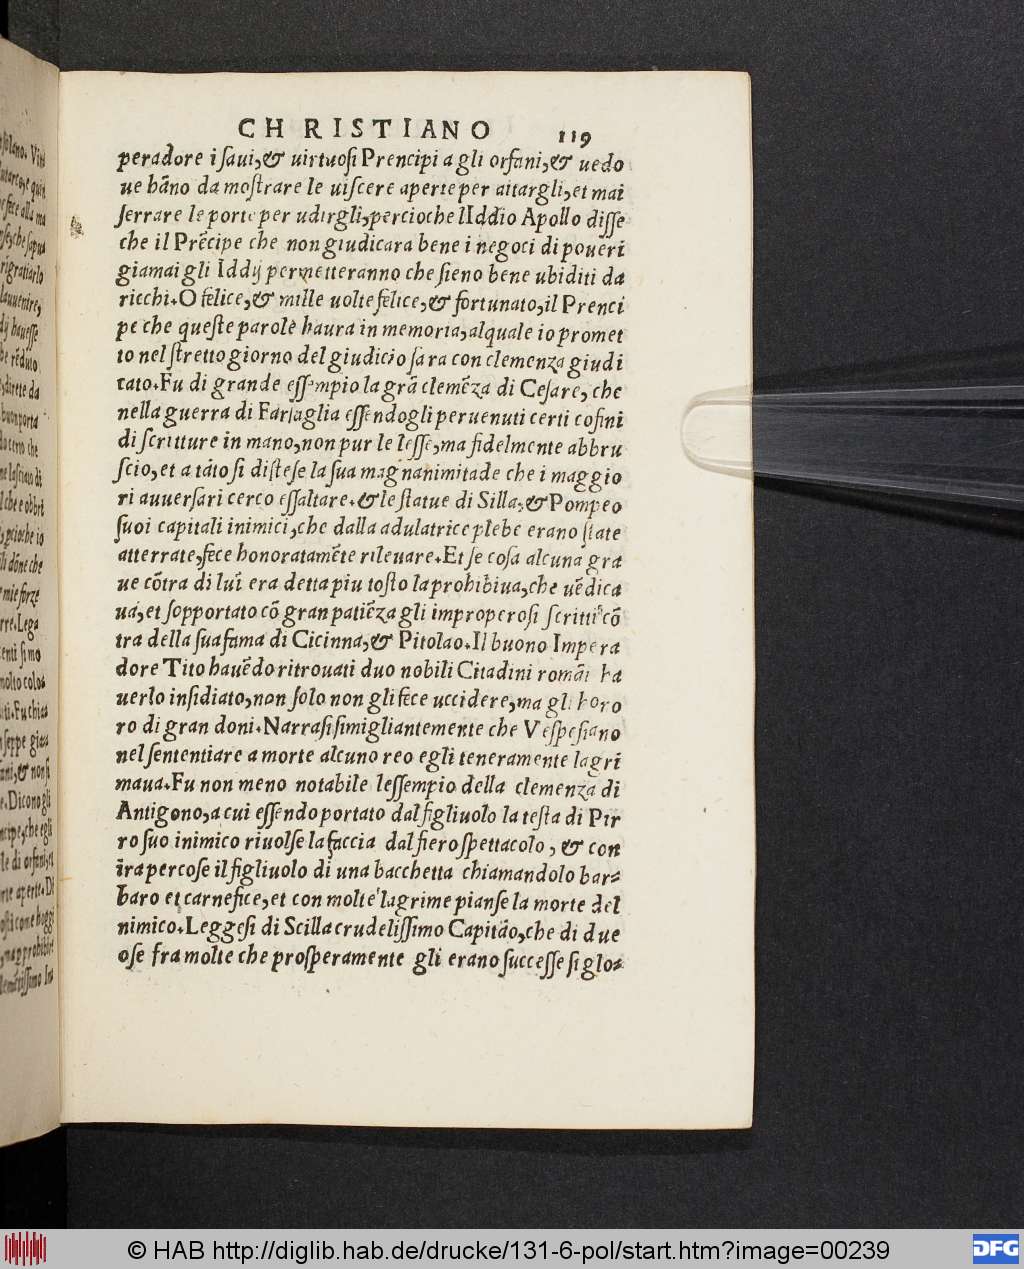 CHRISTIANO 119
peradore i ſaui,& uirtuoſi Prencipi a gli orfani,& uedo
ue hãno da moſtrare le uiſcere aperte per aitargli,et mai
ſerrare le porte per udirgli,percioche lIddio Apollo diſſe
che il Prẽcipe che non giudicara bene i negoci di poueri
giamai gli Iddij permetteranno che ſieno bene ubiditi da
ricchi.O felice,& mille uolte felice,& fortunato,il Prenci
pe che queſte parole haura in memoria,alquale io promet
to nel ſtretto giorno del giudicio ſara con clemenza giudi
cato.Fu di grande eſſempio la grã clemẽza di Ceſare, che
nella guerra di Farſaglia eſſendogli peruenuti certi cofini
di ſcritture in mano,non pur le leſſe,ma fidelmente abbru
ſcio,et a tãto ſi diſteſe la ſua magnanimitade che i maggio
ri auuerſari cerco eſſaltare.& le ſtatue di Silla,& Pompeo
ſuoi capitali inimici,che dalla adulatrice plebe erano ſtate
atterrate,fece honoratamẽte rileuare.Et ſe coſa alcuna gra
ue cõtra di lui era detta piu toſto la prohibiua,che uẽdica
ua,et ſopportato cõ gran patiẽza gli improperoſi ſcritti cõ
tra della ſua fama di Cicinna,& Pitolao.Il buono Impera
dore Tito hauẽdo ritrouati duo nobili Citadini romãi ha
uerlo inſidiato,non ſolo non gli fece uccidere,ma gli horo
ro di gran doni.Narraſi ſimigliantemente che Veſpeſiano
nel ſententiare a morte alcuno reo egli teneramente lagri
maua.Fu non meno notabile leſſempio della clemenza di
Antigono,a cui eſſendo portato dal figliuolo la teſta di Pir
ro ſuo inimico riuolſe la faccia dal fiero ſpettacolo, & con
ira percoſe il figliuolo di una bacchetta chiamandolo bar=
baro et carnefice,et con molte lagrime pianſe la morte del
nimico.Leggeſi di Scilla crudeliſſimo Capitão,che di due
oſe fra molte che proſperamente gli erano ſucceſſe ſi glo=
© HAB http://diglib.hab.de/drucke/131-6-pol/start.htm?image=00239
DFG